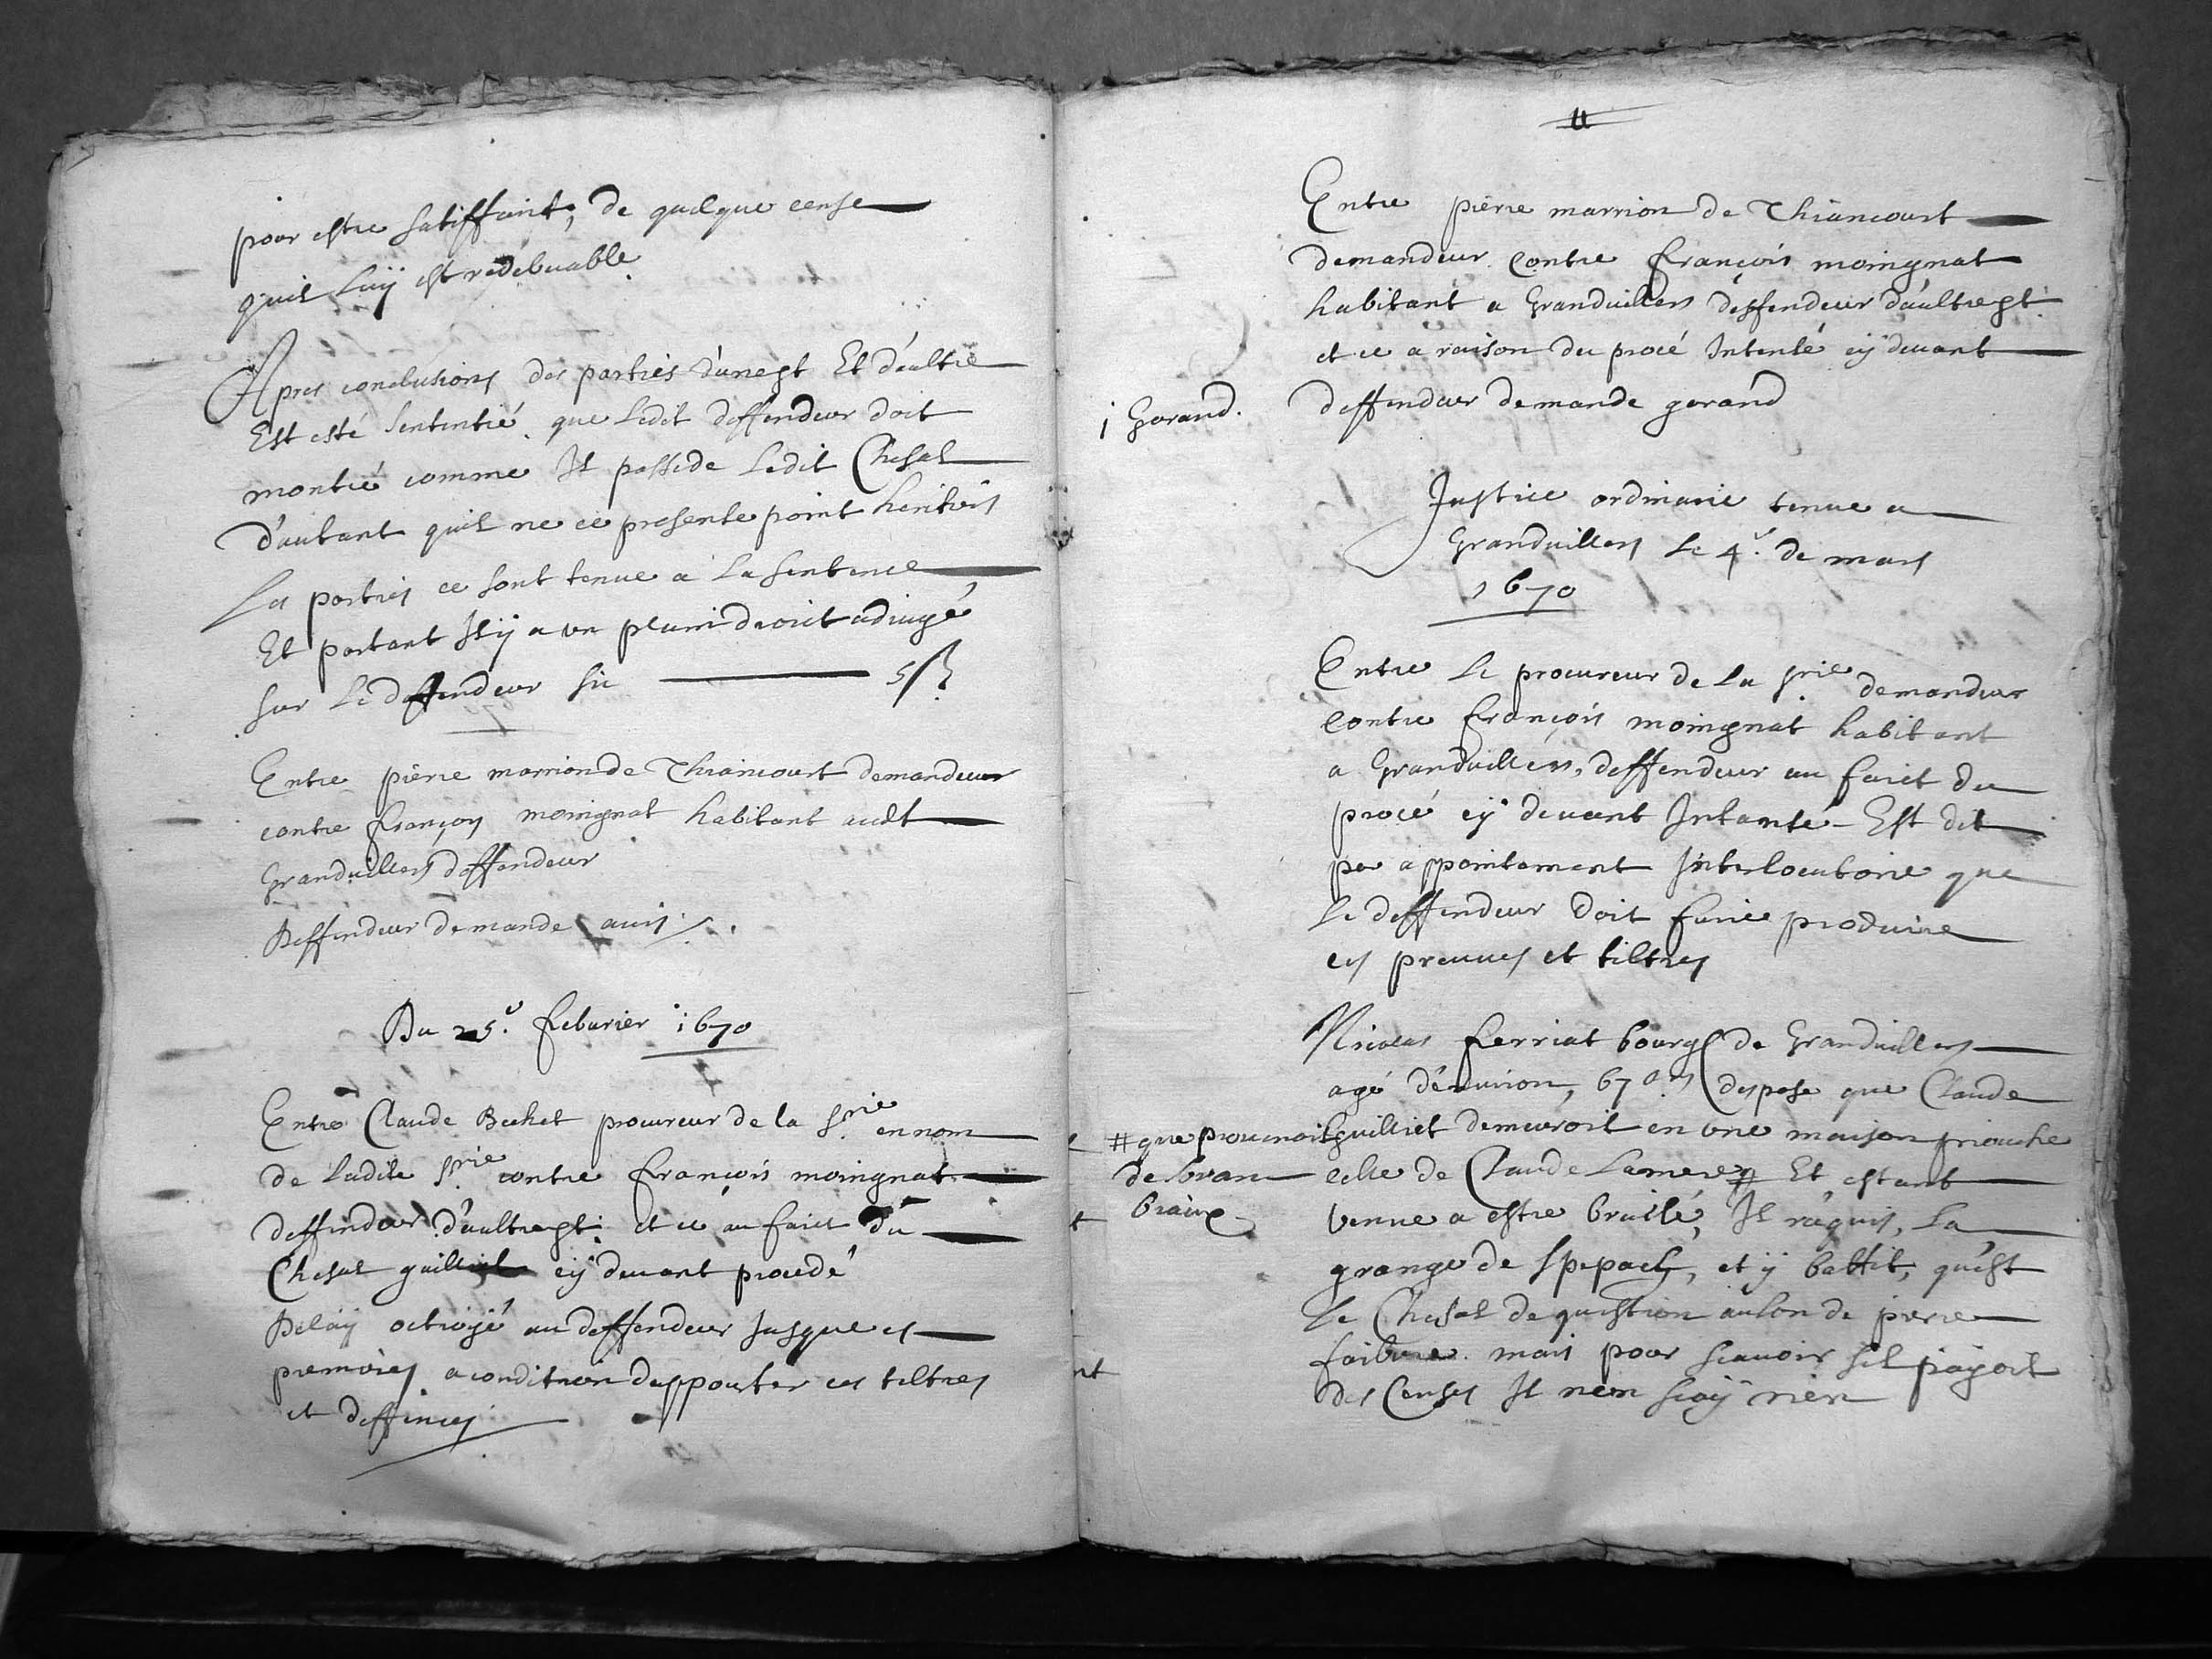 pour estre satiffaint, de quelque cense
quil luÿ est redebuable
Apres conclusions des parties d'une pt Et d'aultre
Est esté sententié que ledit deffendeur doit
montré comme Il possede Ledit Chesal
D'autant quil ne ce presente point heritiers
Les parties ce sont tenue a La sentence
Et partant Ilÿ a un plain droict adiugé
sur Le deffendeur sic 5 ß
Entre pierre marrion de Thiancourt demandeur
contre françoy moingnat habitant audt
Grandvillers deffendeur
Deffendeur demande avis
Du 25e. feburier 1670
Entre Claude Bechet procureur de la Srie en nom
de ladite Srie contre françois moingnat
deffendeur d'aultre pt. et ce au faict du
Chesal guilliet cÿ devant procedé
Delaÿ octroÿé au deffendeur Jusque es
premieres a condition dapporter ces tiltres
et deffences
11
Entre pierre marrion de Thiancourt
demandeur Contre françois moingnat
habitant a Grandvillers deffendeur d'aultre pt
et ce a raison du procé Intenté cÿ devant
deffendeur demande garand
1 Garand.
Justice ordinaire tenue a
Grandvillers le 4e. de mars
1670
Entre le procureur de la Srie demandeur
contre françois moingnat habitant
a Grandvillers, deffendeur au faict du
procé cÿ devant Intanté Est dit
par appointement Interlocutoire que
le deffendeur doit faire produire
ces preuves et tiltres
Nicolas ferriat bourg de Grandvillers
agé d'environ 67 ans depose que Claude
guilliet demeuroit en une maison proche
celle de Claude Lamere # Et estant
# que prouenoit
de
venue a estre bruslé, Il raquis, La
grange de , et ÿ battit, qu'est
le Chesal de question aulon de pierre
mais pour scavoir sil payoit
des Censes Il nen scaÿ rien